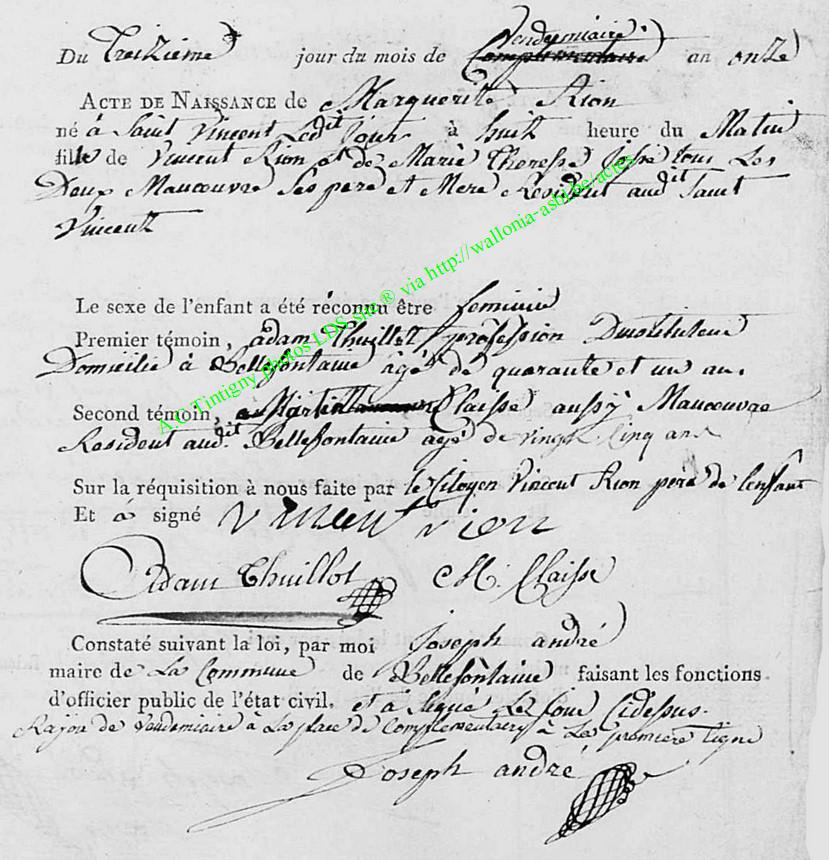 Du Treizieme jour du mois de Vendemiaire Complementaire an onze
ACTE DE NAISSANCE de Marguerite Rion
né à Saint Vincent Ledit Jour à huit heure du Matin
fille de Vincent Rion et de Marie Theresse tous Les
Deux Manoeuvre Ses pere et Mere Resident audit Saint
Vincent
Le sexe de l'enfant a été réconnu être feminin
Premier témoin, adam Thuillot profession Dinstituteur
Domicilié à Bellefontaine âgé de quarante et un an.
Second témoin, Martin Claisse aussy Manoeuvre
Resident audit Bellefontaine agé de vingt Cinq ans
Sur la réquisition à nous faite par le Citoyen Vincent Rion pere de Lenfant
Et à signé vincent rion
Adam Thuillot M. Claisse
Constaté suivant la loi, par moi Joseph andré
maire de La Commune de Bellefontaine faisant les fonctions
d'officier public de l'état civil. et à Signé Les Jour Cidessus.
Rajou de Vendemiaire à La place de Complementaire à La premiere Ligne
Joseph andré
A.C Tintigny photos LDS san ® via http://wallonia-asbl.be/actes